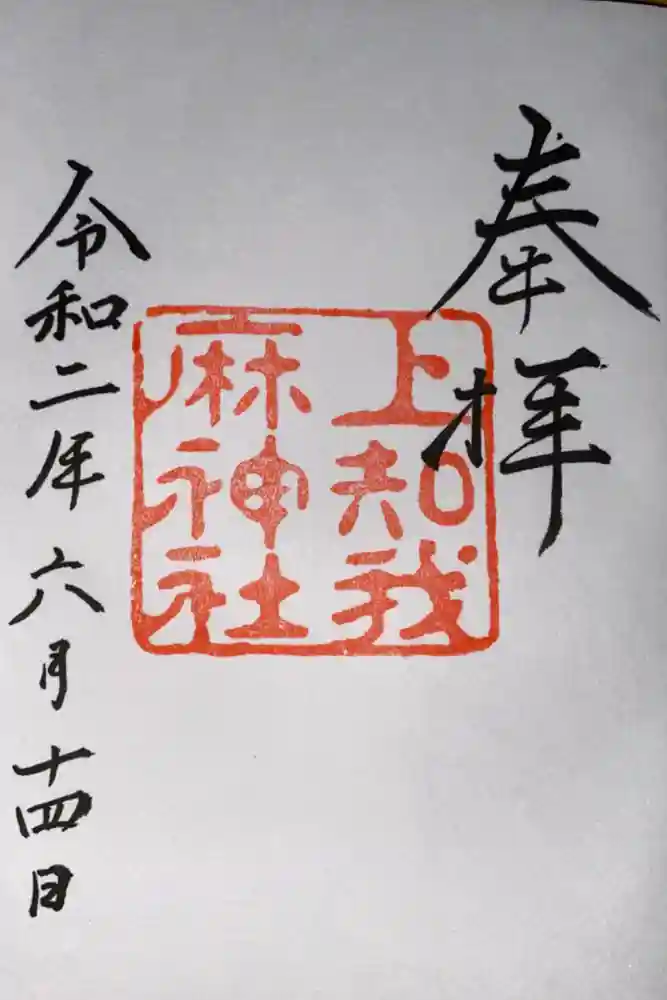 奉拝
上知我
麻神社
令和二年六月十四日